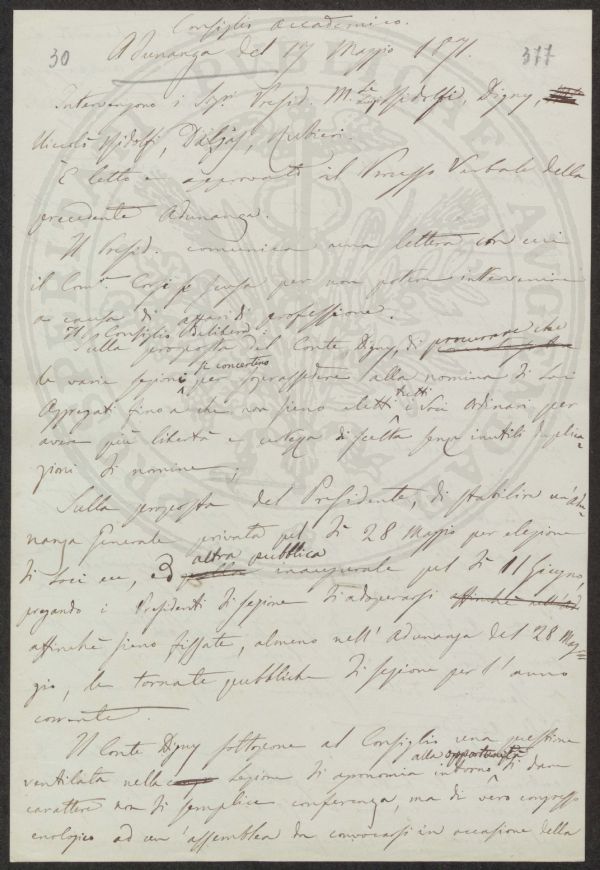 Consiglio Accademico.
Adunanza del 17 Maggio 1871.
30
377
Intervengono i Sigri Presid. M.se Luigi Ridolfi, Digny,
Niccolò Ridolfi, Dalgas, Rubieri.
È letto e approvato il Processo Verbale della
precedente Adunanza.
Il Presid. comunica una lettera con cui
il Com. Corsi si scusa per non potere intervenire
a causa di affari di professione.
Il Consiglio Delibera:
Sulla proposta del Conte Digny, di procurare che
le varie sezioni si concertino per soprassedere alla nomina di Soci
Aggregati fino a che non sieno eletti tutti i Soci Ordinari per
avere più libertà e certezza di scelta senza inutili duplica=
zioni di nomine;
Sulla proposta del Presidente, di stabilire un'Adu
nanza Generale privata pel dì 28 Maggio per elezione
di Soci ec, ed altra pubblica inaugurale pel dì 11 Giugno,
pregando i Presidenti di sezione di adoperarsi affinchè nell'ad
affinchè sieno fissate, almeno nell'Adunanza del 28 Mag=
gio, le tornate pubbliche di sezione per l'anno
corrente.
Il Conte Digny sottopone al Consiglio una questione
ventilata nella Sezione di agronomia intorno alla opportunità di dare
carattere non di semplice conferenza, ma di vero congresso
enologico ad un'assemblea da convocarsi in occasione della